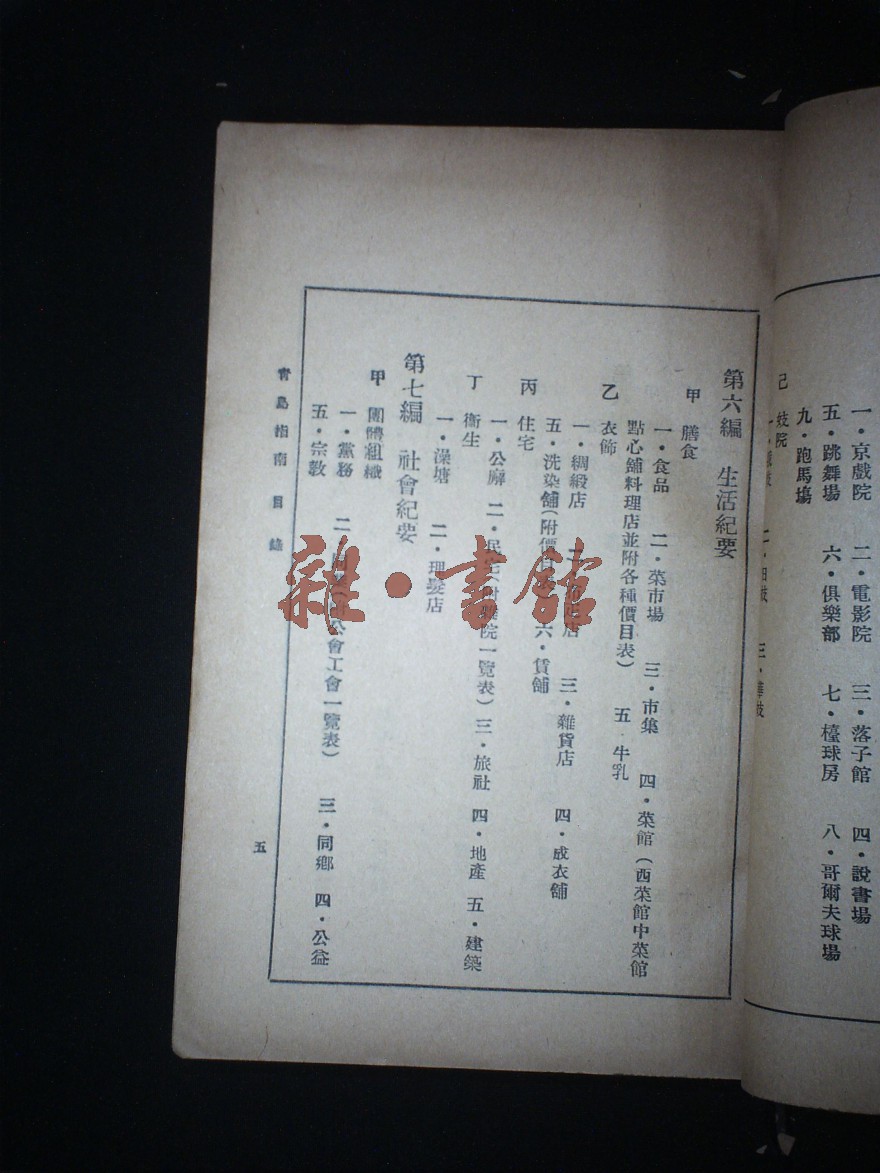 一．京戲院　二．電影院　三．落子館　四．說書場
五．跳舞場　六．俱樂部　七．檯球房　八．哥爾夫球場
九．跑馬場
己　妓院
第六編　生活紀要
甲　膳食
一．食品　二．菜市場　三．市集　四．菜館（西菜館中菜館
點心鋪料理店並附各種價目表）　五　牛乳
乙　衣飾
一．綢緞店　三．雜貨店　四．成衣舖
五．洗染舖（附價目　六．賃舖
丙　住宅
一．公廨　二．民宅　院一覽表）三．旅社　四．地產　五．建築
丁　衛生
一．澡塘　二．理髮店
第七編　社會紀要
甲　團體組織
一．黨務　二　公會工會一覽表）　三．同鄉　四．公益
五．宗教
青島指南　目錄
五
雜・書館